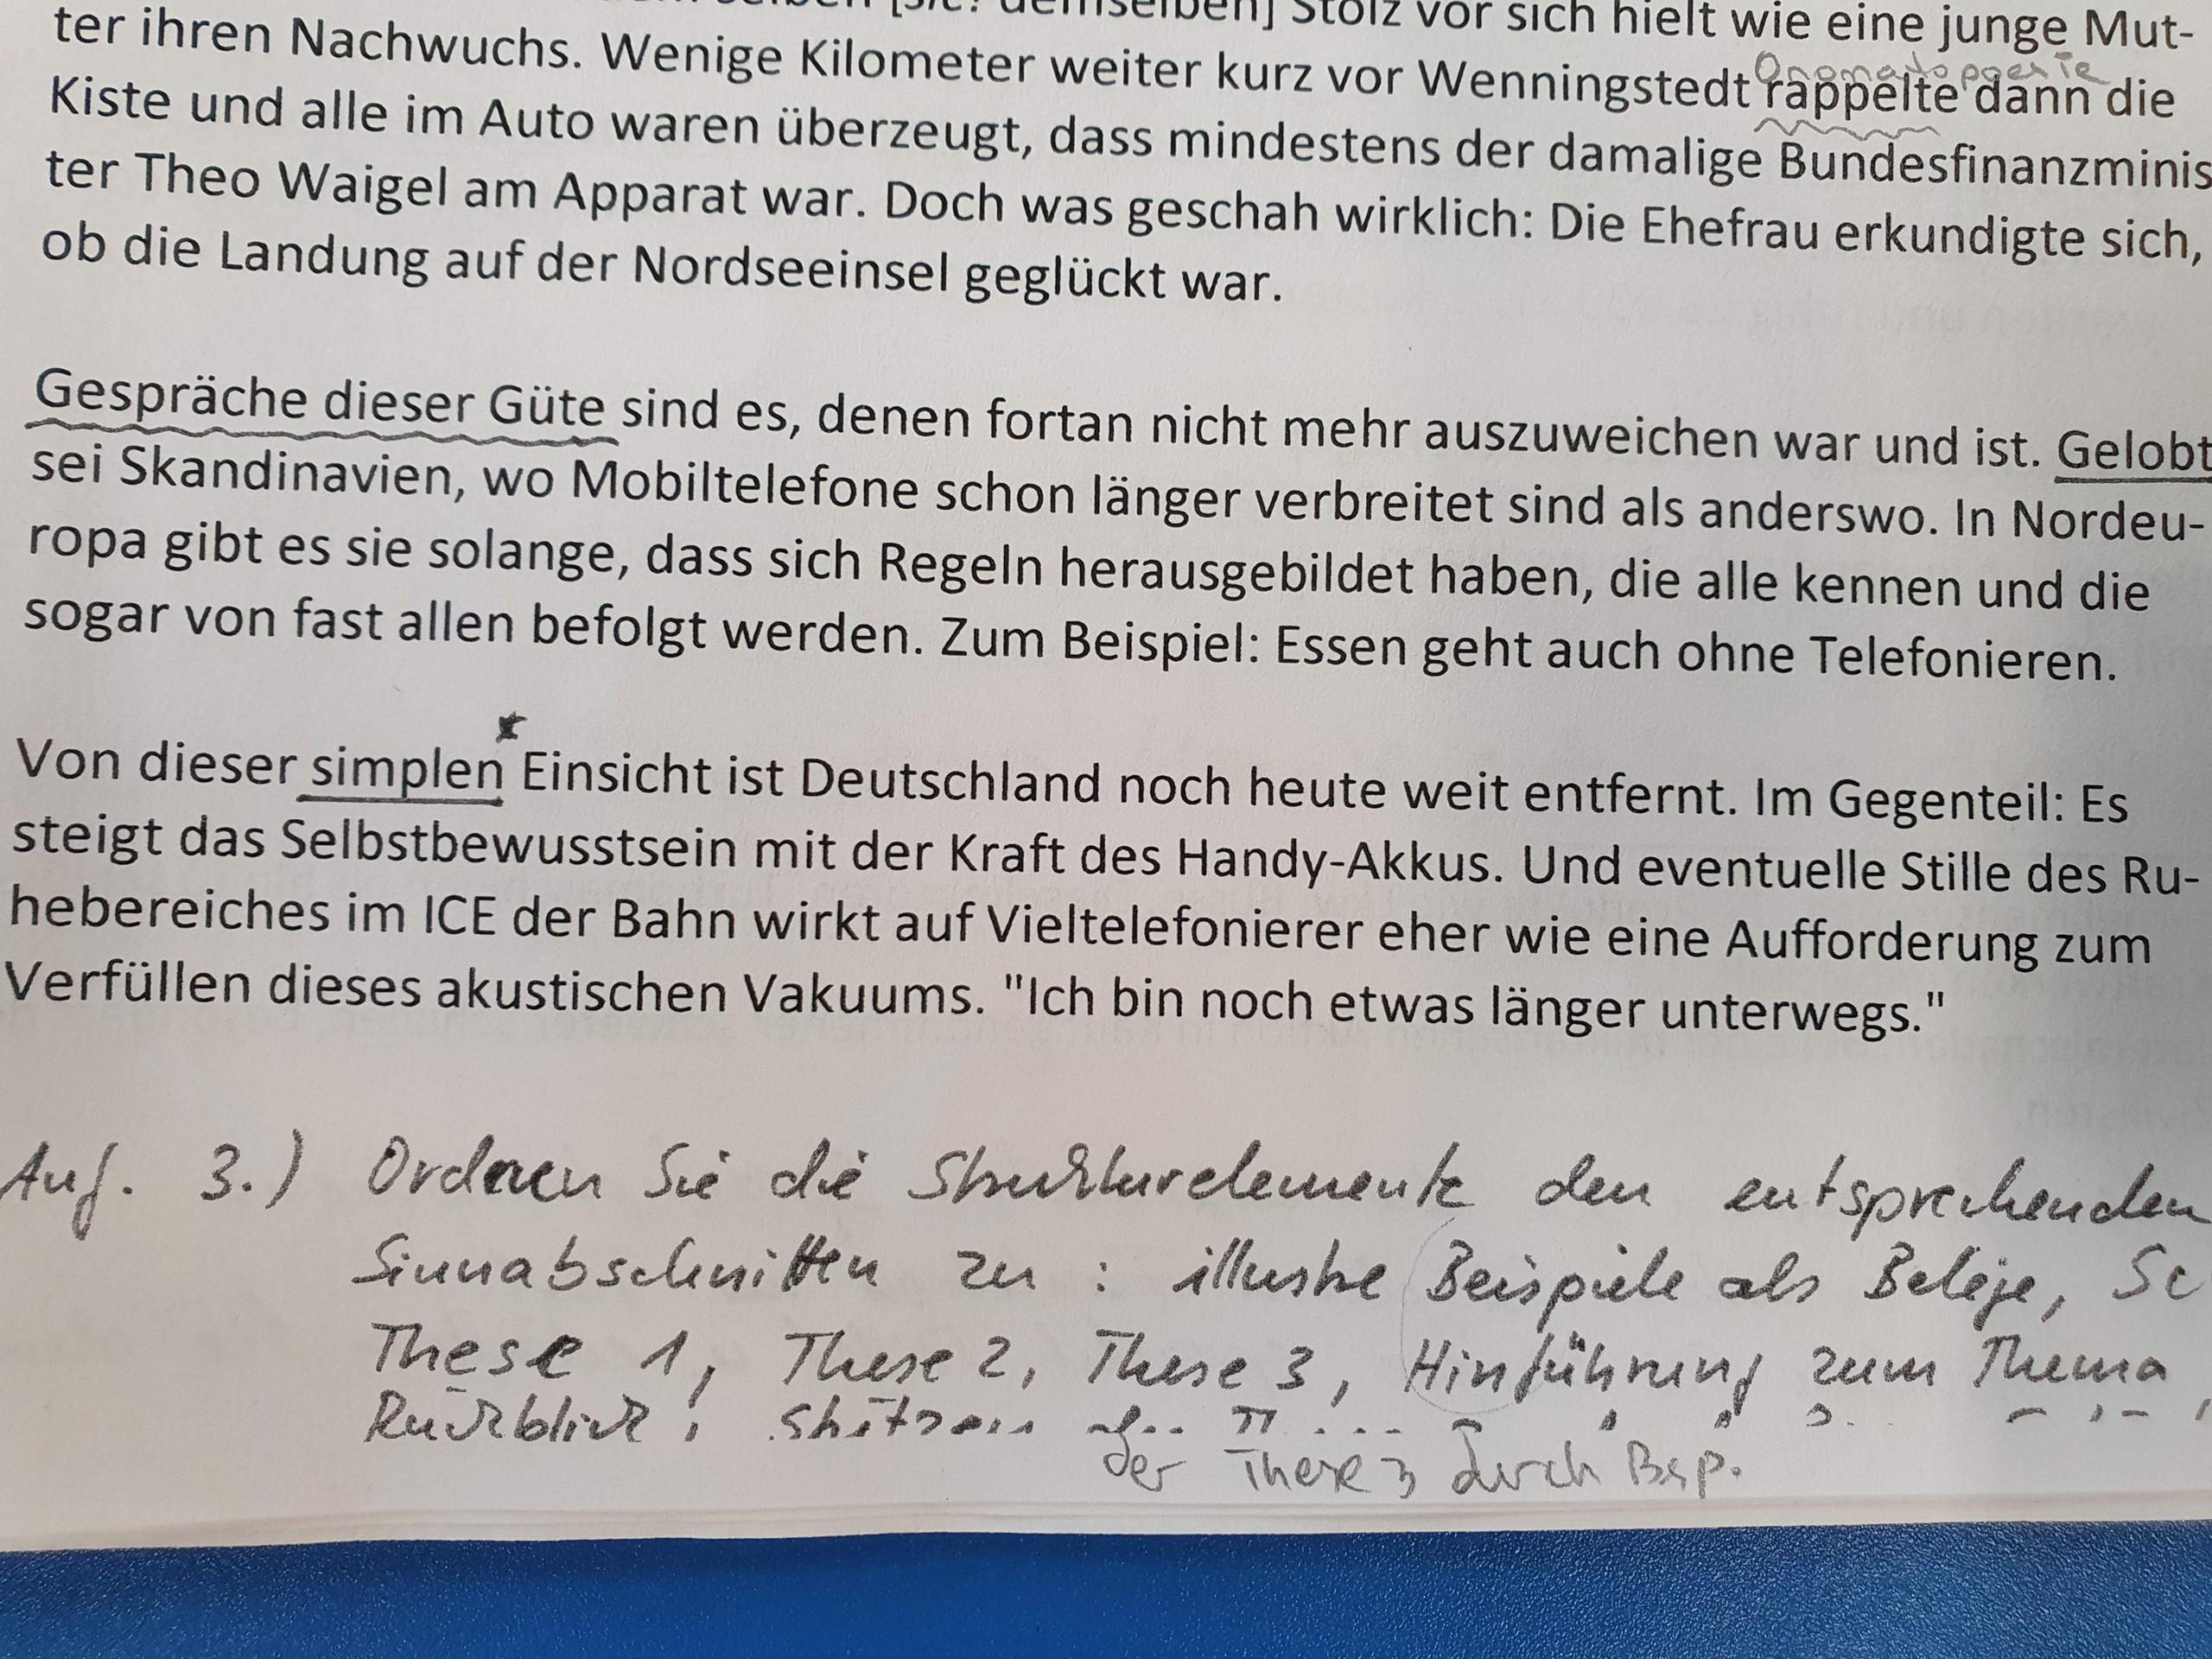 [sic! demselben] Stolz vor sich hielt wie eine junge Mut-
ter ihren Nachwuchs. Wenige Kilometer weiter kurz vor Wenningstedt rappelte dann die
Onomatopoesie
Kiste und alle im Auto waren überzeugt, dass mindestens der damalige Bundesfinanzminis
ter Theo Waigel am Apparat war. Doch was geschah wirklich: Die Ehefrau erkundigte sich,
ob die Landung auf der Nordseeinsel geglückt war.
Gespräche dieser Güte sind es, denen fortan nicht mehr auszuweichen war und ist. Gelobt
sei Skandinavien, wo Mobiltelefone schon länger verbreitet sind als anderswo. In Nordeu-
ropa gibt es sie solange, dass sich Regeln herausgebildet haben, die alle kennen und die
sogar von fast allen befolgt werden. Zum Beispiel: Essen geht auch ohne Telefonieren.
Von dieser simplen Einsicht ist Deutschland noch heute weit entfernt. Im Gegenteil: Es
steigt das Selbstbewusstsein mit der Kraft des Handy-Akkus. Und eventuelle Stille des Ru-
hebereiches im ICE der Bahn wirkt auf Vieltelefonierer eher wie eine Aufforderung zum
Verfüllen dieses akustischen Vakuums. "Ich bin noch etwas länger unterwegs."
Auf. 3.) Ordnen Sie die Strukturelemente den entsprechenden
Sinnabschnitten zu: illustre Beispiele als Belege,
These 1, These 2, These 3, Hinführung zum Thema,
Rückblick,
der These 3 durch Bsp.